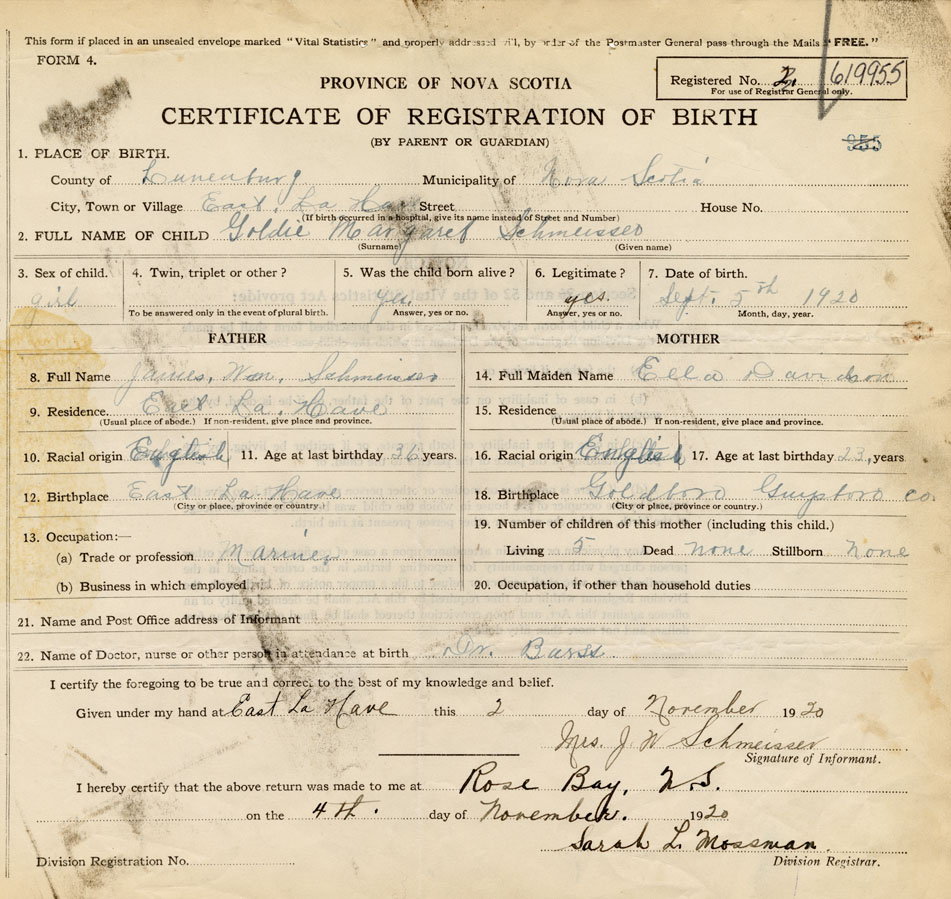 This form if placed in an unsealed envelope marked "Vital Statistics" and properly addressed will, by order of the Postmaster General pass through the Mails "FREE."
FORM 4.
Registered No. 2. 619955
For use of Registrar General only.
PROVINCE OF NOVA SCOTIA
CERTIFICATE OF REGISTRATION OF BIRTH
(BY PARENT OR GUARDIAN)
1. PLACE OF BIRTH.
County of Lunenburg Municipality of Nova Scotia
City, Town or Village East La Have Street House No.
(If birth occurred in a hospital, give its name instead of Street and Number)
2. FULL NAME OF CHILD Goldie Margaret Schmeisser
(Surname) (Given name)
3. Sex of child. 4. Twin, triplet or other? 5. Was the child born alive? 6. Legitimate? 7. Date of birth.
girl yes. yes. Sept. 5th 1920
To be answered only in the event of plural birth. Answer, yes or no. Answer, yes or no. Month, day, year.
FATHER MOTHER
8. Full Name James, Wm. Schmeisser 14. Full Maiden Name Ella Davidson
9. Residence. East La. Have 15. Residence
(Usual place of abode.) If non-resident, give place and province. (Usual place of abode.) If non-resident, give place and province.
10. Racial origin English 11. Age at last birthday 36 years. 16. Racial origin English 17. Age at last birthday 23, years
12. Birthplace East La. Have 18. Birthplace Goldboro Guysboro co.
(City or place, province or country.) (City or place, province or country.)
13. Occupation:— 19. Number of children of this mother (including this child.)
(a) Trade or profession Mariner Living 5 Dead none Stillborn none
(b) Business in which employed 20. Occupation, if other than household duties
21. Name and Post Office address of Informant
22. Name of Doctor, nurse or other person in attendance at birth Dr. Barss
I certify the foregoing to be true and correct to the best of my knowledge and belief.
Given under my hand at East La Have this 2 day of November 1920
Mrs. J. W Schmeisser
Signature of Informant.
I hereby certify that the above return was made to me at Rose Bay, N.S.
on the 4th. day of November. 1920
Sarah L. Mossman.
Division Registration No. Division Registrar.